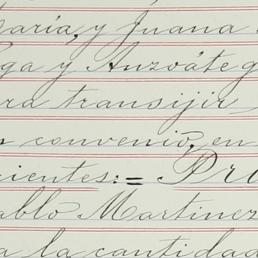 aría, y Juana
ga y Anzoáteg
ra transijir
convenio, en
cientes:= Pri
ablo Martinez
a la cantidad